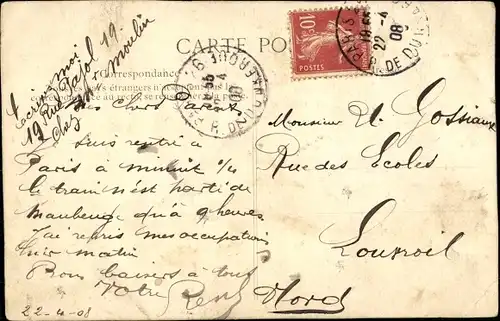 CARTE POSTALE
Correspondance
10
POSTES
22 -4
08
R. DE DUNKERQUE
Ecrivez moi
19 Rue Pajol 19.
chez Mr Moulin
Mes Chers Parents
Je suis rentré à
Paris à minuit 1/4
le train n'est parti de
Maubeuge qu'à 9 heures
J'ai repris mes occupations
hier matin
Bons baisers à tous
Votre René
22-4-08
Monsieur U. Gossiaux
Rue des Ecoles
Louvroil
Nord